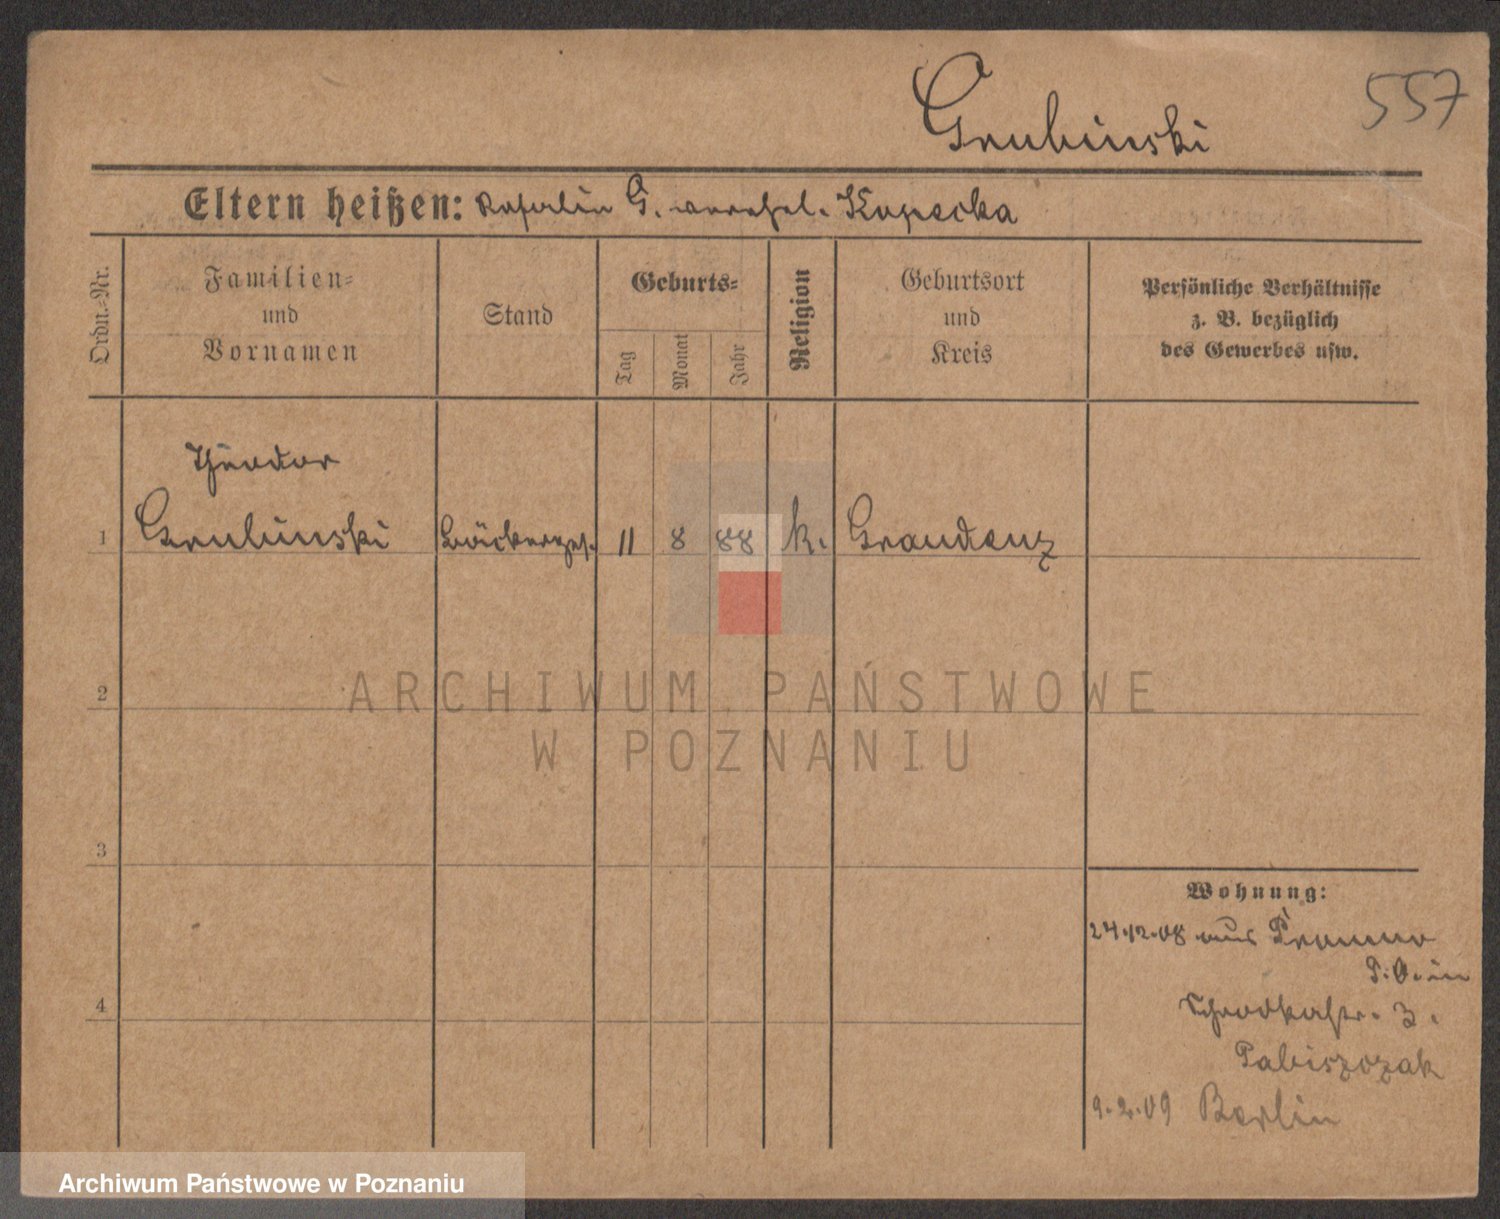 557
Grubinski
Eltern heißen: Rosalie G. verehel. Kopecka
Ordn.-Nr.
Familien-
und
Vornamen
Stand
Geburts-
Tag
Monat
Jahr
Religion
Geburtsort
und
Kreis
Persönliche Verhältnisse
z. B. bezüglich
des Gewerbes usw.
Theodor
1 Grubinski Bäckerges. 11 8 88 k. Graudenz
2
3
4
ARCHIWUM PAŃSTWOWE
W POZNANIU
Wohnung:
24.12.08 aus
P.O. in
Schrodkastr. 3.
Pabiszczak
9.2.09 Berlin
Archiwum Państwowe w Poznaniu